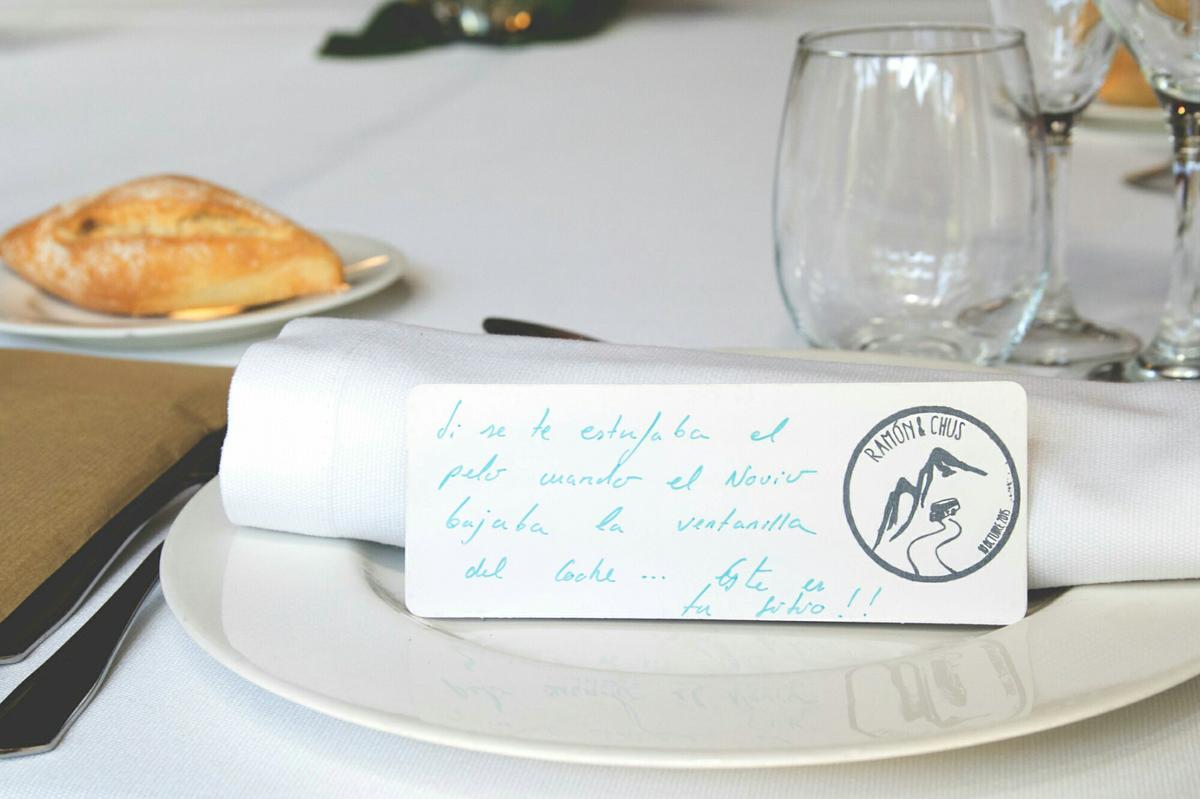 Si se te estufaba el
pelo cuando el Novio
bajaba la ventanilla
del coche ... Este es
tu sitio!!
RAMÓN & CHUS
10 OCTUBRE 2015